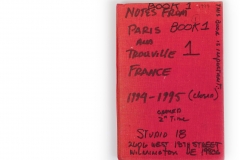 BOOK 1
NOTES FROM
PARIS BOOK 1
AND
TROUVILLE 1
FRANCE
1994-1995 (closed)
2nd Time
STUDIO 18
2406 WEST 18TH STREET
WILMINGTON DE
THIS BOOK IS